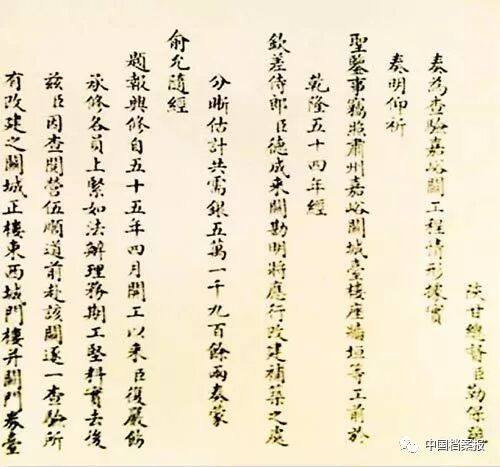 陕甘總督臣勒保謹
奏為查驗嘉峪關工程情形據實
奏明仰祈
聖鑒事竊照肅州嘉峪關城臺樓座墻垣等工前於
乾隆五十四年經
欽差侍郎臣德成來關勘明將應行改建補築之處
分晰估計共需銀五萬一千九百餘兩奏蒙
俞允隨經
題報興修自五十五年四月開工以來臣復嚴飭
承修各員上緊如法辦理務期工堅料實去後
茲臣因查閱營伍順道前赴該關逐一查驗所
有改建之關城正樓東西城門樓并關門券臺
中国档案报